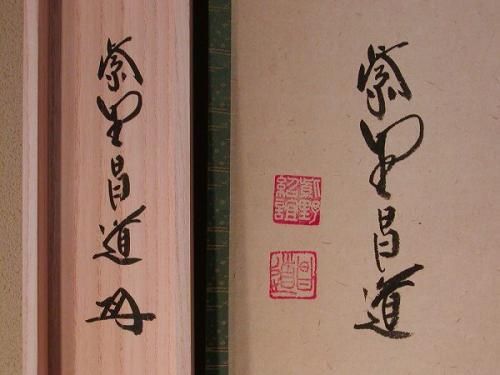 紫野昌道
昌道
紫野昌道